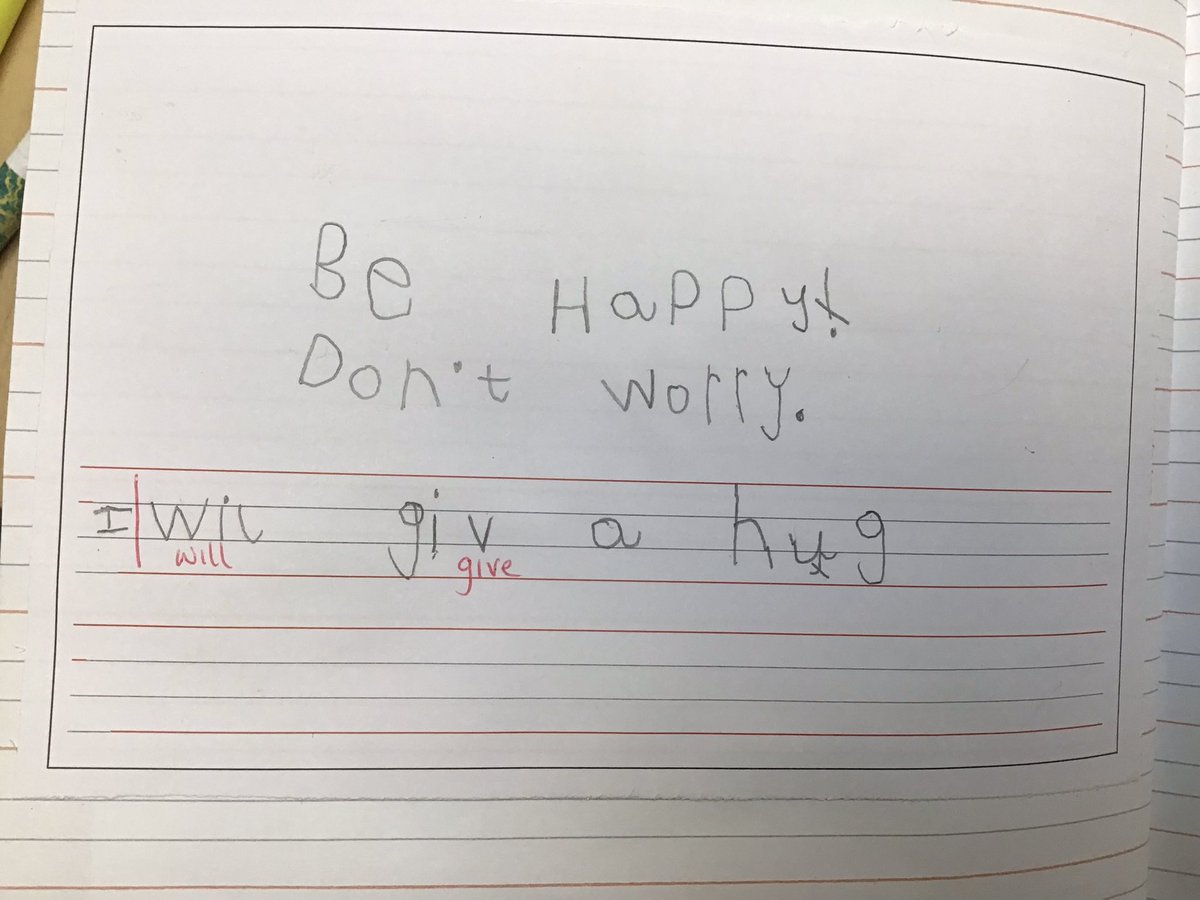 Be Happy!
Don't worry.
I wil giv a hug
will give